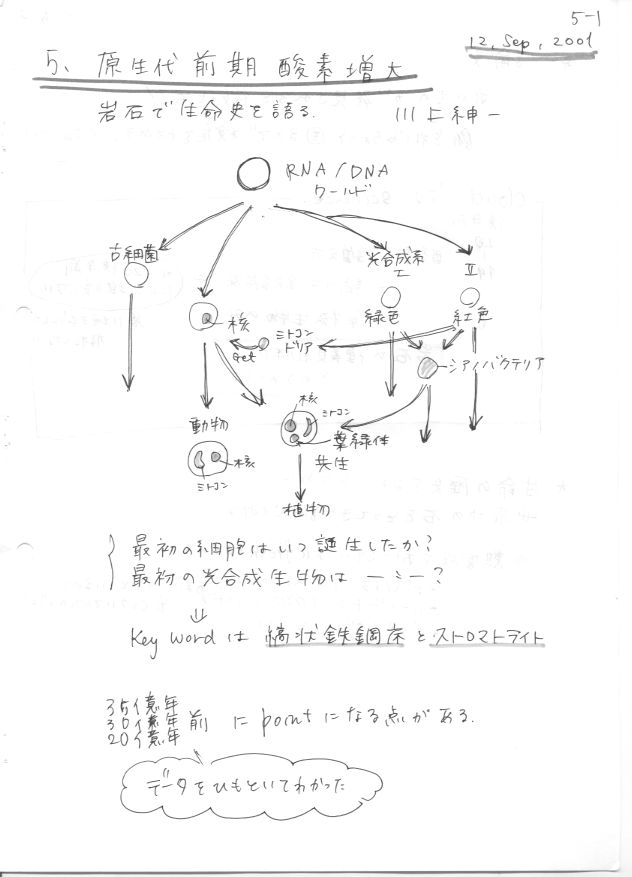 5-1
12, Sep, 2001
5、原生代前期酸素増大
岩石で生命史を語る. 川上紳一
RNA/DNA
ワールド
古細菌
光合成系
I
II
緑色
紅色
核
Get
ミトコン
ドリア
シアノバクテリア
核
ミトコン
葉緑体
共生
動物
核
ミトコン
植物
最初の細胞はいつ誕生したか?
最初の光合成生物は 〃 ?
⇓
Key wordは 縞状鉄鋼床とストロマトライト
35億年
30億年前 に pointになる点がある.
20億年
データをひもといてわかった